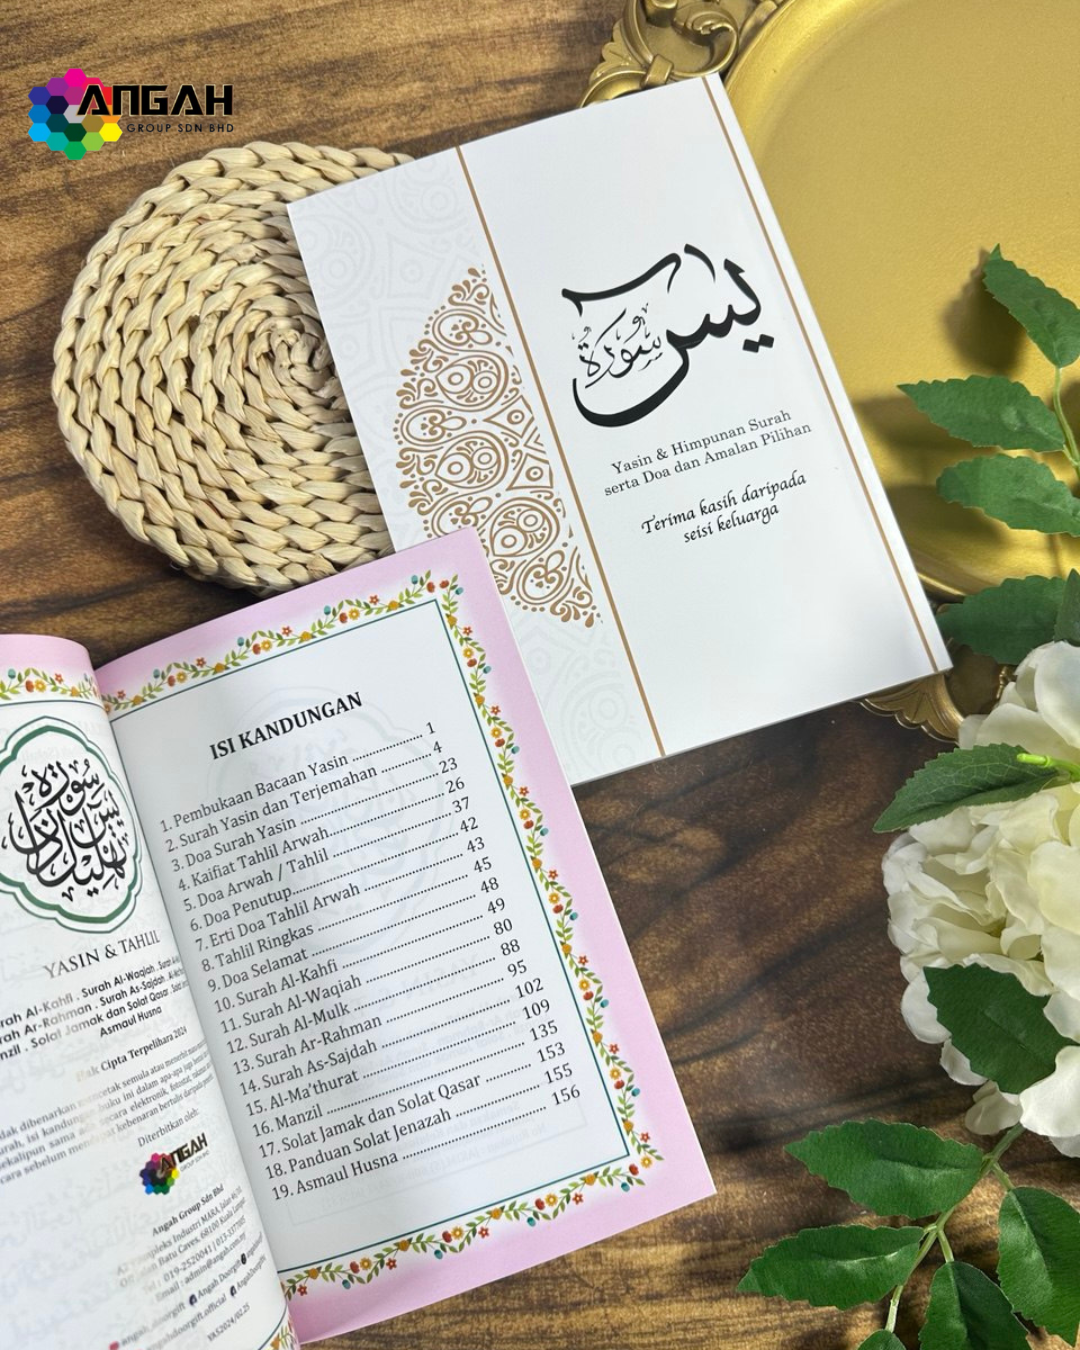 ANGAH
GROUP SDN BHD
يس
سورة
Yasin & Himpunan Surah
serta Doa dan Amalan Pilihan
Terima kasih daripada
seisi keluarga
ISI KANDUNGAN
1. Pembukaan Bacaan Yasin ................... 1
2. Surah Yasin dan Terjemahan .............. 4
3. Doa Surah Yasin ................................ 23
4. Kaifiat Tahlil Arwah........................... 26
5. Doa Arwah / Tahlil ............................ 37
6. Doa Penutup..................................... 42
7. Erti Doa Tahlil Arwah ........................ 43
8. Tahlil Ringkas ................................... 45
9. Doa Selamat ..................................... 48
10. Surah Al-Kahfi ................................ 49
11. Surah Al-Waqiah ............................. 80
12. Surah Al-Mulk ................................ 88
13. Surah Ar-Rahman ............................ 95
14. Surah As-Sajdah ............................. 102
15. Al-Ma'thurat .................................. 109
16. Manzil .......................................... 135
17. Solat Jamak dan Solat Qasar ........... 153
18. Panduan Solat Jenazah .................... 155
19. Asmaul Husna ................................ 156
YASIN & TAHLIL
Al-Kahfi . Surah Al-Waqiah .
Ar-Rahman . Surah As-Sajdah .
Solat Jamak dan Solat Qasar .
Asmaul Husna
Cipta Terpelihara 2024
dibenarkan mencetak semula atau menerbit
isi kandungan buku ini dalam apa-apa juga
sama ada secara elektronik, fotostat,
sebelum mendapat kebenaran bertulis daripada
Diterbitkan oleh:
ANGAH
Angah Group Sdn Bhd
Kompleks Industri MARA, Jalan
Jalan Batu Caves, 68100 Kuala Lumpur
019-2520041
Email : admin@angah.com.my
angah_doorgift Angah Doorgift
angahdoorgift.official
YAS2024/02.25